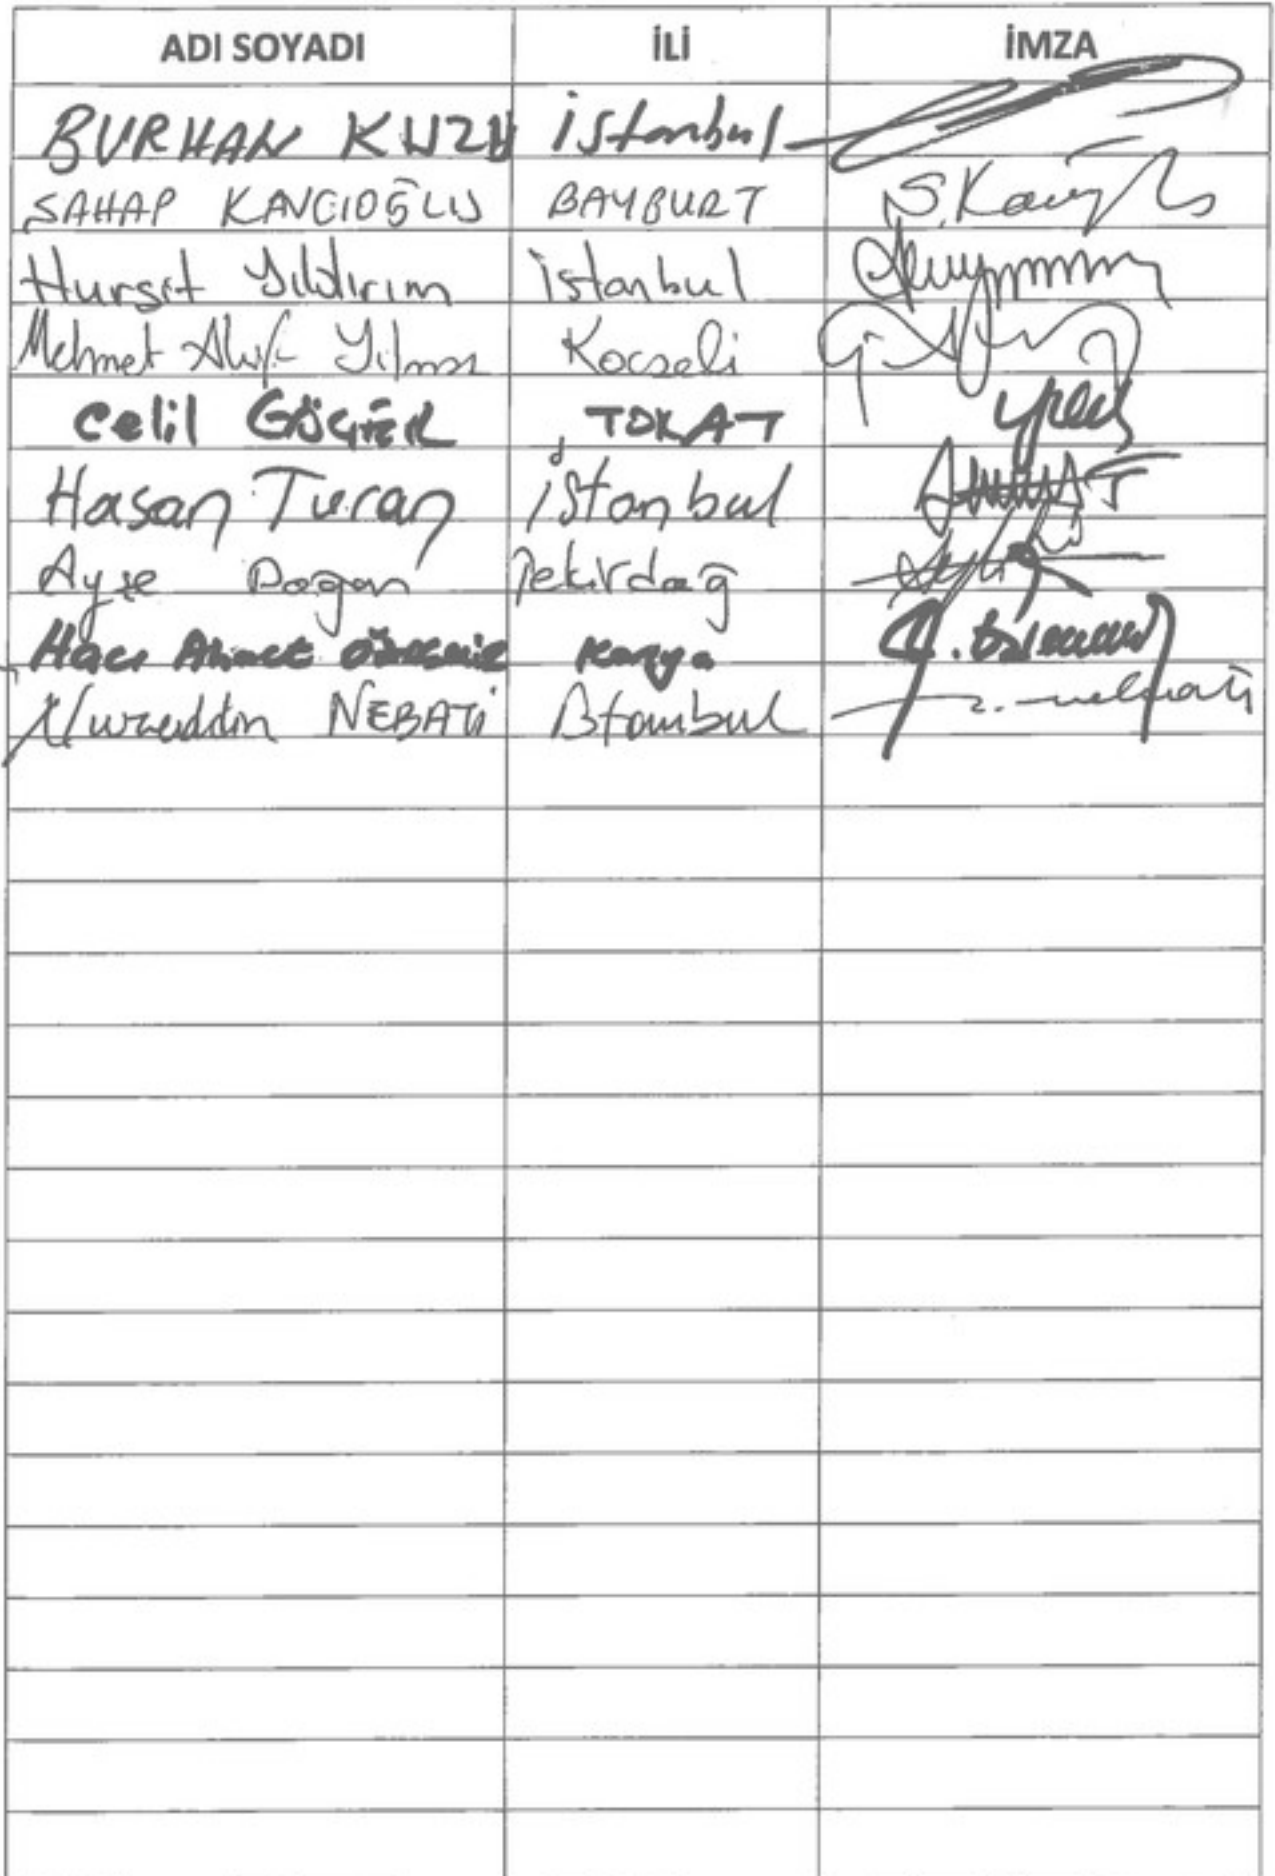 ADI SOYADI İLİ İMZA
BURHAN KUZU İstanbul
ŞAHAP KAVCIOĞLU BAYBURT S.Kavcıoğlu
Hurşit Yıldırım İstanbul
Mehmet Akif Yılmaz Kocaeli
Celil GÖÇER TOKAT
Hasan Turan İstanbul
Ayşe Doğan Tekirdağ
Hacı Ahmet ÖZDEMİR Konya
Nureddin NEBATİ İstanbul n. nebati